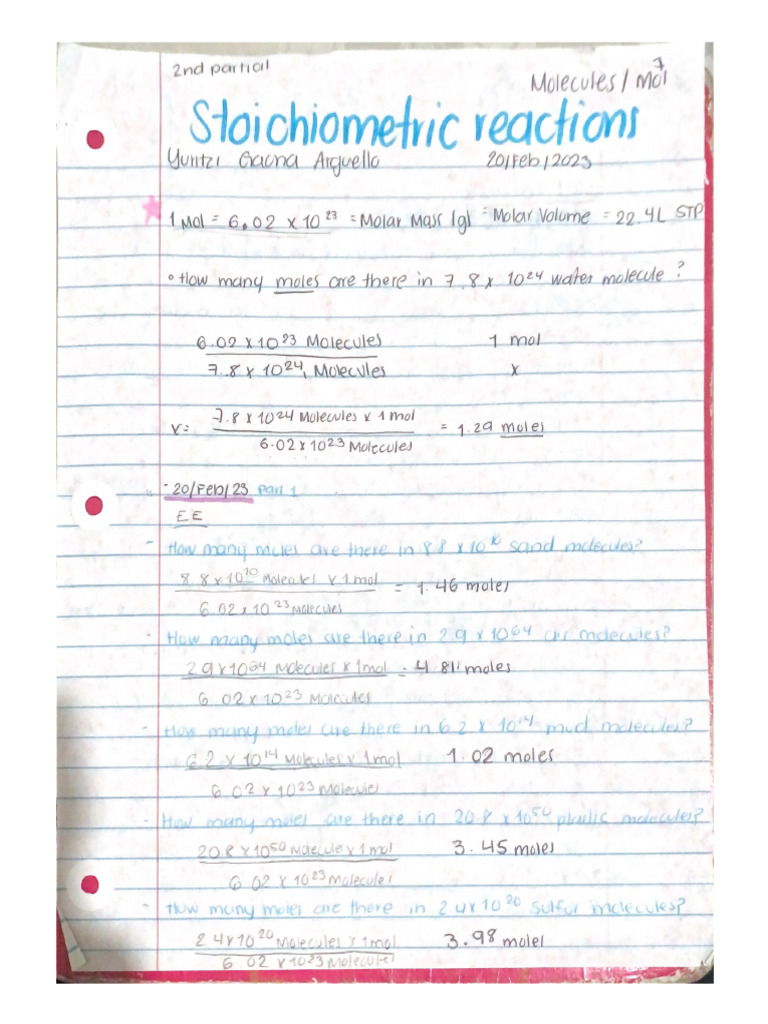 2nd partial
7
Molecules / mol
Stoichiometric reactions
Yuritzi Gaona Arguello 20/Feb/2023
1 Mol = 6.02 x 10 23 = Molar Mass (g) = Molar Volume = 22.4L STP
• How many moles are there in 7.8 x 10 24 water molecule?
6.02 x 10 23 Molecules 1 mol
7.8 x 10 24 Molecules x
7.8 x 10 24 Molecules x 1 mol
= 1.29 moles
6.02 x 10 23 Molecules
- 20/Feb/23 Part 1
EE
- How many moles are there in 8.8 x 10 sand molecules?
8.8 x 10 Molecules x 1 mol
= 1.46 moles
6.02 x 10 23 Molecules
- How many moles are there in 2.9 x 10 64 air molecules?
2.9 x 10 64 Molecules x 1 mol
= 4.81 moles
6.02 x 10 23 Molecules
- How many moles are there in 6.2 x 10 14 mud molecules?
6.2 x 10 14 Molecules x 1 mol 1.02 moles
6.02 x 10 23 Molecules
- How many moles are there in 20.8 x 10 50 plastic molecules?
20.8 x 10 50 Molecule x 1 mol 3.45 moles
6.02 x 10 23 Molecules
- How many moles are there in 2.4 x 10 20 sulfur molecules?
2.4 x 10 20 Molecules x 1 mol 3.98 moles
6.02 x 10 23 Molecules